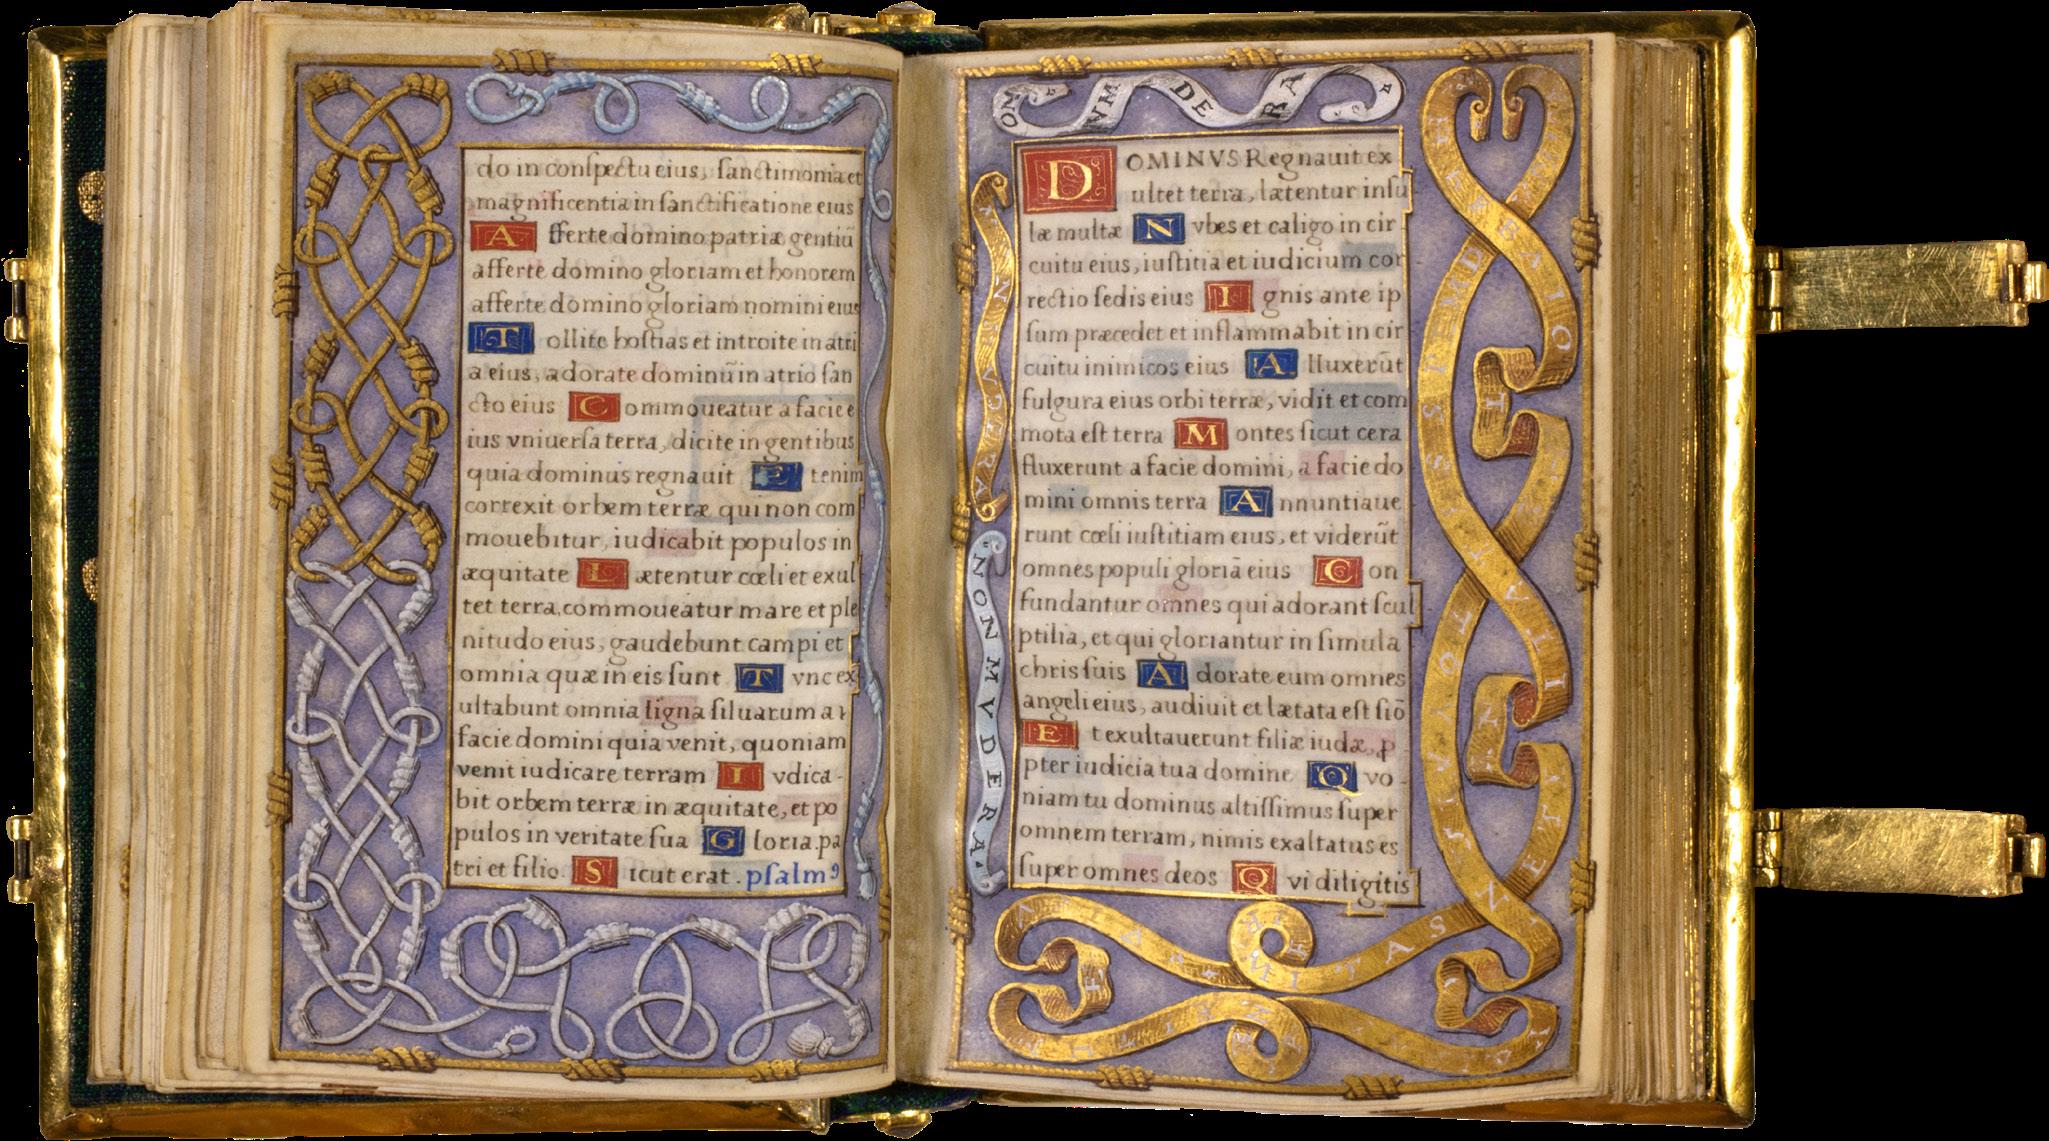 do in conſpectu eius, ſanctimonia et
magnificentia in ſanctificatione eius
Afferte domino patriæ gentiū
afferte domino gloriam et honorem
afferte domino gloriam nomini eius
Tollite hoſtias et introite in atri
a eius, adorate dominū in atrio ſan
cto eius Commoueatur a facie e
ius vniuerſa terra, dicite in gentibus
quia dominus regnauit Etenim
correxit orbem terræ qui non com
mouebitur, iudicabit populos in
æquitate Lætentur cœli et exul
tet terra, commoueatur mare et ple
nitudo eius, gaudebunt campi et
omnia quæ in eis ſunt Tvnc ex
ultabunt omnia ligna ſiluarum a
facie domini quia venit, quoniam
venit iudicare terram Ivdica-
bit orbem terræ in æquitate, et po
pulos in veritate ſua Gloria.pa
tri et filio. Sicut erat. pſalmꝰ
OM NVM DE RA
NON MVDERA
DOMINVS Regnauit ex
ultet terra, lætentur inſu
læ multæ Nvbes et caligo in cir-
cuitu eius, iuſtitia et iudicium cor
rectio ſedis eius Ignis ante ip
ſum præcedet et inflammabit in cir
cuitu inimicos eius Alluxerūt
fulgura eius orbi terræ, vidit et com
mota eſt terra Montes ſicut cera
fluxerunt a facie domini, a facie do
mini omnis terra Annuntiaue
runt cœli iuſtitiam eius, et viderūt
omnes populi gloriā eius Con
fundantur omnes qui adorant ſcul
ptilia, et qui gloriantur in ſimula
chris ſuis Adorate eum omnes
angeli eius, audiuit et lætata eſt ſiō
Et exultauerunt filiæ iudæ, p
pter iudicia tua domine Qvo-
niam tu dominus altiſſimus ſuper
omnem terram, nimis exaltatus es
ſuper omnes deos Qvi diligitis